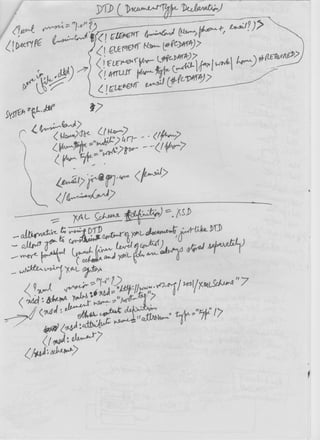 DTD (Document Type Declaration)
<?xml version="1.0"?>
<!DOCTYPE businesscard
<!ELEMENT businesscard (Name, phone+, email?)>
<!ELEMENT Name (#PCDATA)>
<!ELEMENT phone (#PCDATA)>
<!ATTLIST phone type (mobile | fax | work | home) #REQUIRED>
<!ELEMENT email (#PCDATA)>
]>
<Name> Joe </Name>
<phone type="mobile"> 415- - - </phone>
<phone type="work"> 800- - - </phone>
</email>
</BusinessCard>
= XML Schema (definition) = XSD
- alternative to using DTD
- allows you to constrain content of XML documents just like DTD
- more powerful (much finer level of control)
(schema and XML files are always stored separately)
- written using XML syntax
<?xml version="1.0"?>
<xsd:schema xmlns:xsd="http://www.w3.org/2001/XMLSchema">
<xsd:element name="root tag">
other content definition
<xsd:attribute name="attrname" type="type"/>
</xsd:element>
</xsd:schema>